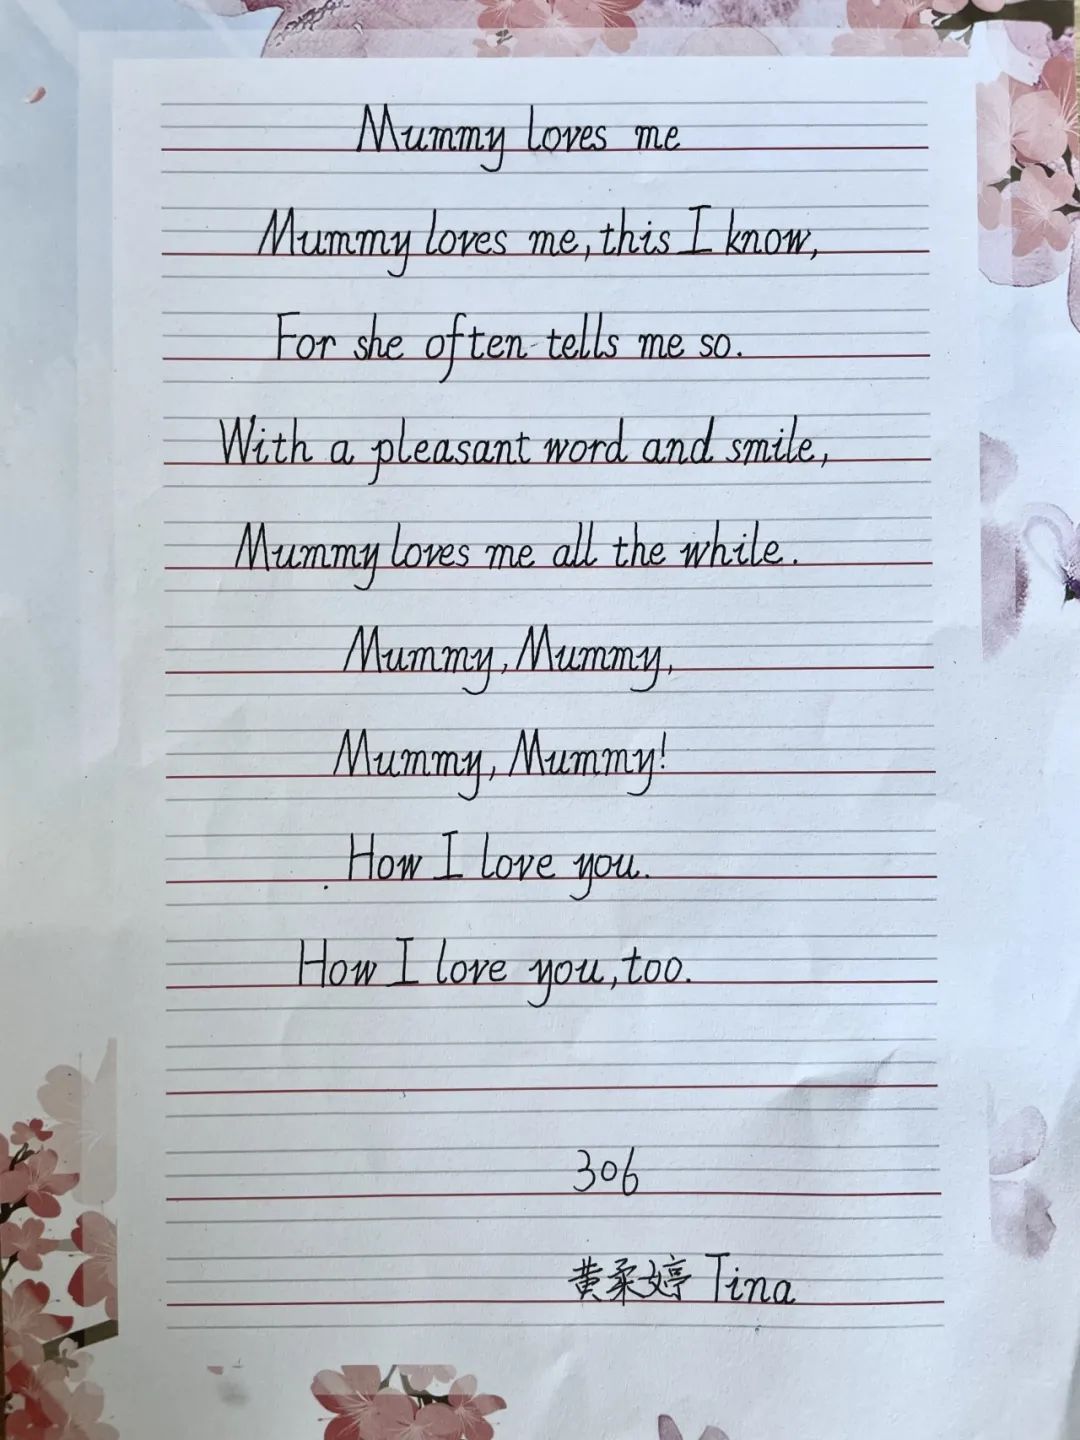 Mummy loves me
Mummy loves me, this I know,
For she often tells me so.
With a pleasant word and smile,
Mummy loves me all the while.
Mummy, Mummy,
Mummy, Mummy!
How I love you.
How I love you, too.
306
黄柔婷 Tina